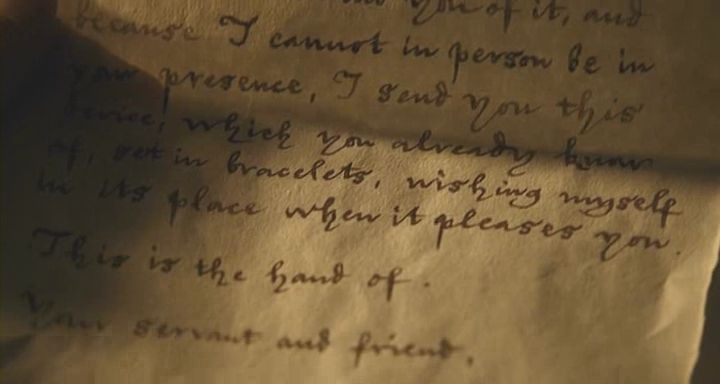 you of it, and
because I cannot in person be in
your presence, I send you this
device, which you already know
of, set in bracelets, wishing myself
in its place when it pleases you.
This is the hand of.
Your servant and friend,